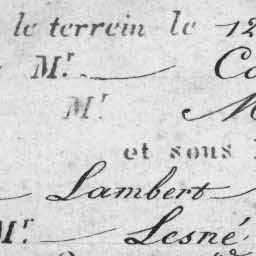 le terrein le 12
Mr. Co
Mr M
et sous
Lambert
Mr Lesné